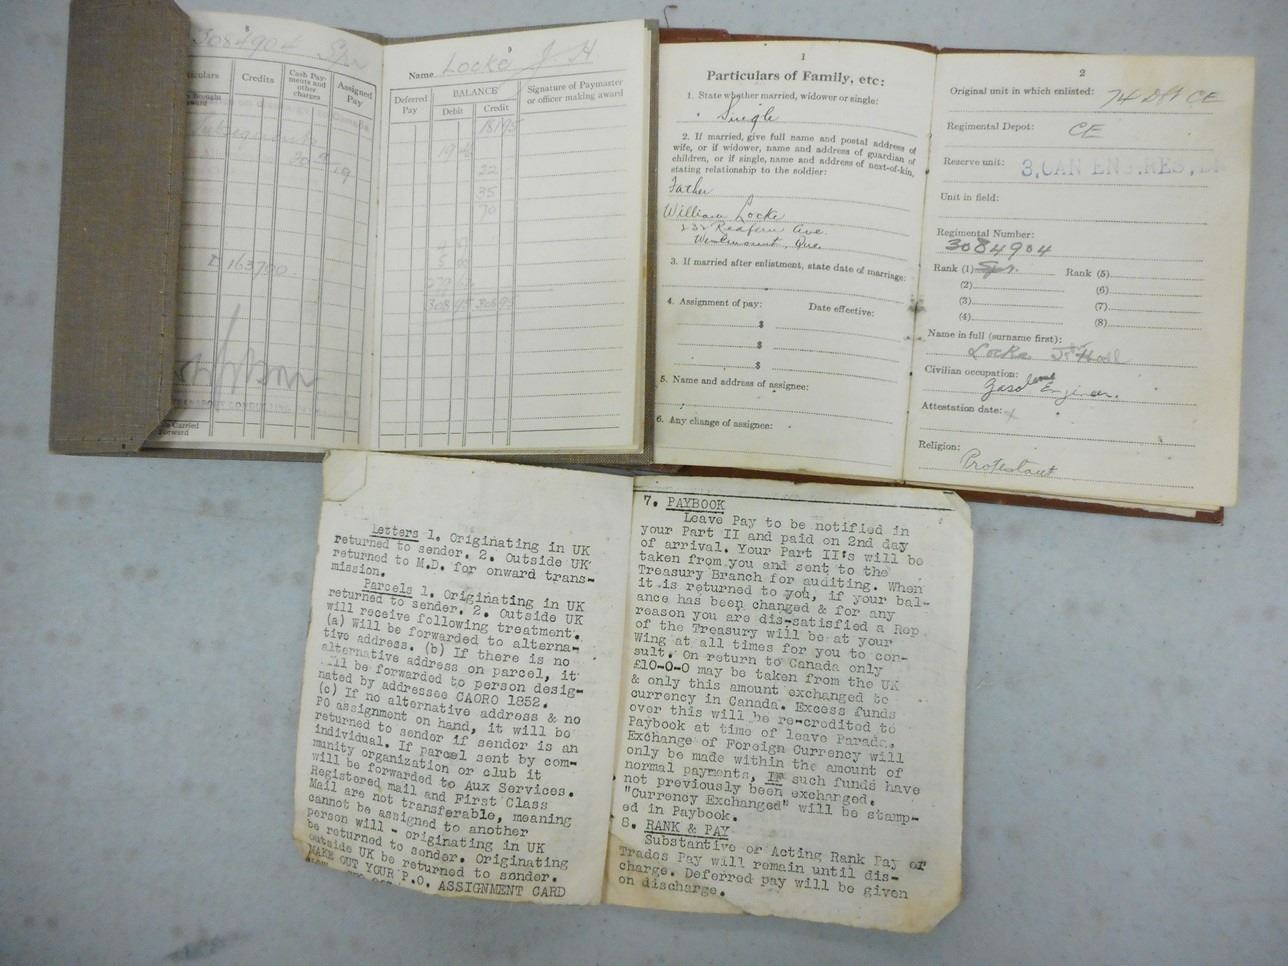 8
3084904 Spr
Credits
Cash Pay-
ments and
other
charges
Assigned
Pay
20
D 163700
Carried
Forward
9
Name Locke J. H.
Deferred
Pay
BALANCE
Debit
Credit
Signature of Paymaster
or officer making award
22
35
70
1
Particulars of Family, etc:
1. State whether married, widower or single:
Single
2. If married, give full name and postal address of
wife, or if widower, name and address of guardian of
children, or if single, name and address of next-of-kin,
stating relationship to the soldier:
Father
William Locke
232 Redfern Ave.
Westmount, Que.
3. If married after enlistment, state date of marriage:
4. Assignment of pay: Date effective:
$
$
$
5. Name and address of assignee:
6. Any change of assignee:
2
Original unit in which enlisted:
CE
Regimental Depot: CE
Reserve unit: 3, CAN ENG. RES,
Unit in field:
Regimental Number:
3084904
Rank (1) Spr. Rank (5)
(2) (6)
(3) (7)
(4) (8)
Name in full (surname first):
Locke
Civilian occupation:
Gasoline Engineer.
Attestation date:
Religion:
Protestant
Letters 1. Originating in UK
returned to sender. 2. Outside UK
returned to M.D. for onward trans-
mission.
Parcels 1. Originating in UK
returned to sender. 2. Outside UK
will receive following treatment.
(a) Will be forwarded to alterna-
tive address. (b) If there is no
alternative address on parcel, it
be forwarded to person desig-
nated by addressee CAORO 1852.
(c) If no alternative address & no
PO assignment on hand, it will be
returned to sender if sender is an
individual. If parcel sent by com-
munity organization or club it
will be forwarded to Aux Services.
Registered mail and First Class
Mail are not transferable, meaning
cannot be assigned to another
person will - originating in UK
be returned to sender. Originating
outside UK be returned to sender.
MAKE OUT YOUR P.O. ASSIGNMENT CARD
7. PAYBOOK
Leave Pay to be notified in
your Part II and paid on 2nd day
of arrival. Your Part II's will be
taken from you and sent to the
Treasury Branch for auditing. When
it is returned to you, if your bal-
ance has been changed & for any
reason you are dis-satisfied a Rep
of the Treasury will be at your
Wing at all times for you to con-
sult. On return to Canada only
£10-0-0 may be taken from the UK
& only this amount exchanged to
currency in Canada. Excess funds
over this will be re-credited to
Paybook at time of leave Parade.
Exchange of Foreign Currency will
only be made within the amount of
normal payments, IF such funds have
not previously been exchanged.
"Currency Exchanged" will be stamp-
ed in Paybook.
8. RANK & PAY
Substantive or Acting Rank Pay or
Trades Pay will remain until dis-
charge. Deferred pay will be given
on discharge.